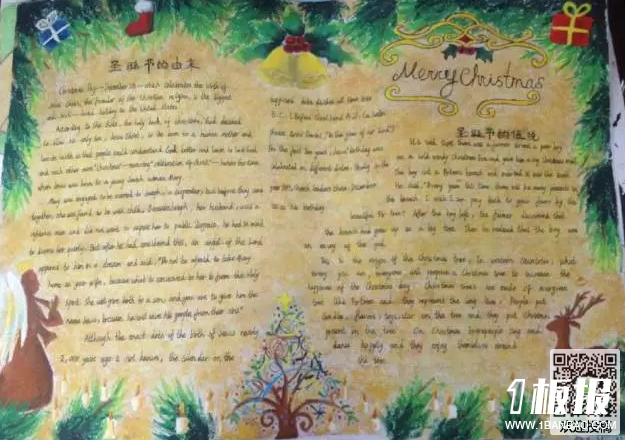 圣诞节的由来
Christmas Day—December 25—which celebrates the birth of
Jesus Christ, the founder of the Christian religion, is the biggest
and best-loved holiday in the United States.
According to the Bible, the holy book of Christians, God decided
to allow his only son, Jesus Christ, to be born to a human mother and
live on earth so that people could understand God better and learn to love God
and each other more. "Christmas"—meaning "celebration of Christ"—honors the time
when Jesus was born to a young Jewish woman Mary.
Mary was engaged to be married to Joseph, a carpenter, but before they came
together, she was found to be with child. Because Joseph, her husband, was a
righteous man and did not want to expose her to public disgrace, he had in mind
to divorce her quietly. But after he had considered this, an angel of the Lord
appeared to him in a dream and said, "Do not be afraid to take Mary
home as your wife, because what is conceived in her is from the Holy
Spirit. She will give birth to a son, and you are to give him the
name Jesus, because he will save his people from their sins."
Although the exact date of the birth of Jesus nearly
2,000 years ago is not known, the calendar on the
supposed date divides all time into
B.C. (Before Christ) and A.D. (a Latin
phrase, Anno Domini, "in the year of our Lord.")
For the first 300 years, Jesus' birthday was
celebrated on different dates. Finally, in the
year 354, church leaders chose December
25 as his birthday.
Merry Christmas
圣诞节的传说
It is said that there was a farmer
on a cold snowy Christmas Eve and gave him a big Christmas
The boy cut a branch and
He said, "Every year this time, there will be many presents by
the branch. I wish I can pay back to your favor by the
beautiful fir tree." After the boy left, the farmer discovered that
the branch had grown up as a big tree. Then he realized that the boy was
an envoy of the god.
This is the origin of the Christmas tree. In western countries,
you are, everyone will prepare a Christmas tree to increase the
happiness of the Christmas day. Christmas trees are made of evergreen
tree and they represent the long live. People put
candles, flowers, star on the tree and they put Christmas
present on the tree. On Christmas Eve, people sing and
dance happily and they enjoy themselves around
the tree.
1板报
WWW.1BANBAO.COM
欢迎投稿